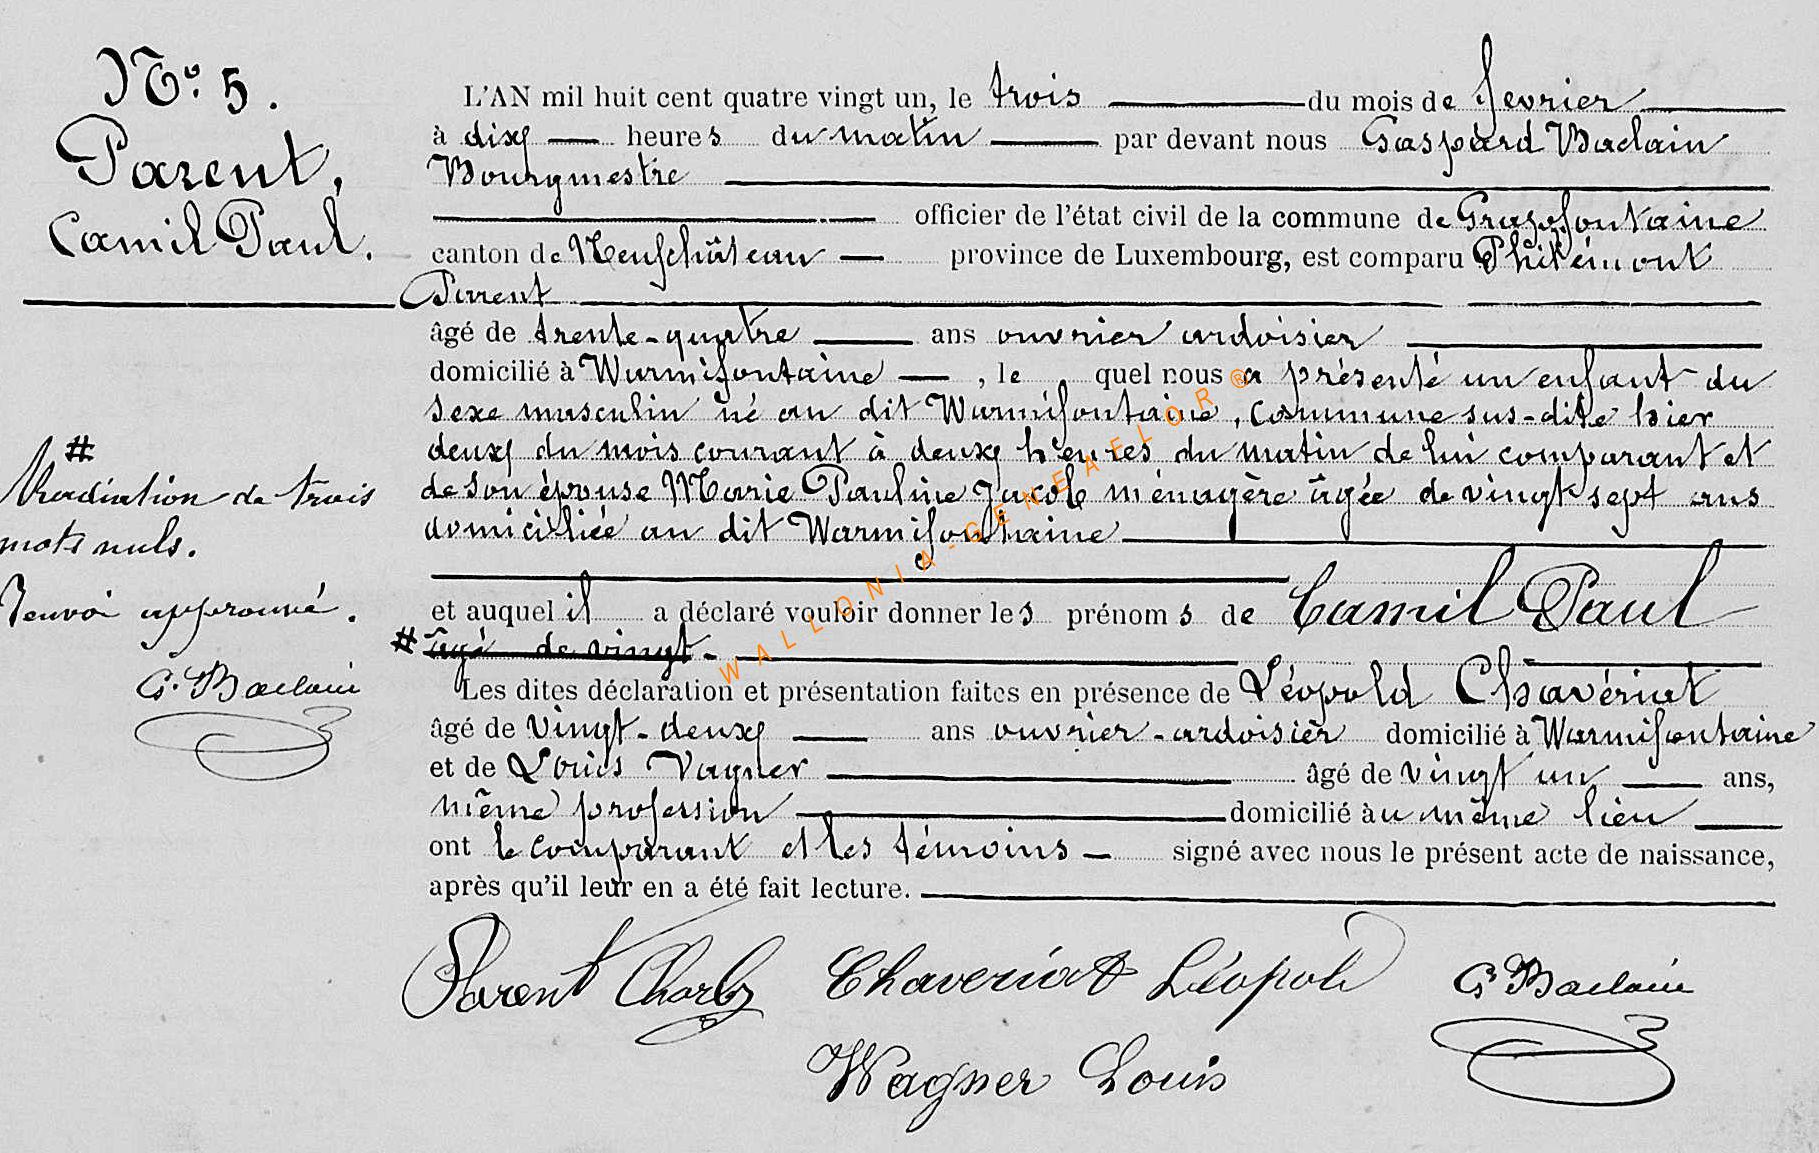 No. 5.
Parent,
Camil Paul.
L'AN mil huit cent quatre vingt un, le trois du mois de fevrier
à dix heures du matin par devant nous Gaspard Baclain
Bourgmestre
officier de l'état civil de la commune de Grapfontaine
canton de Neufchâteau province de Luxembourg, est comparu Philémont
Parent
âgé de trente-quatre ans ouvrier ardoisier
domicilié à Warmifontaine, le quel nous a présenté un enfant du
sexe masculin né au dit Warmifontaine, commune sus-dite hier
deux du mois courant à deux heures du matin de lui comparant et
de son épouse Marie Pauline Jacob ménagère âgée de vingt sept ans
domiciliée au dit Warmifontaine
et auquel il a déclaré vouloir donner les prénoms de Camil Paul
# âgé de vingt
Les dites déclaration et présentation faites en présence de Léopold Chavériat
âgé de vingt-deux ans ouvrier-ardoisier domicilié à Warmifontaine
et de Louis Vagner âgé de vingt un ans,
même profession domicilié au même lieu
ont le comparant et les témoins signé avec nous le présent acte de naissance,
après qu'il leur en a été fait lecture.
#
Radiation de trois
mots nuls.
Renvoi approuvé.
G. Baclain
Parent Chaveriat Léopold G Baclain
Wagner Louis
WALLONIA-GENEALOR®